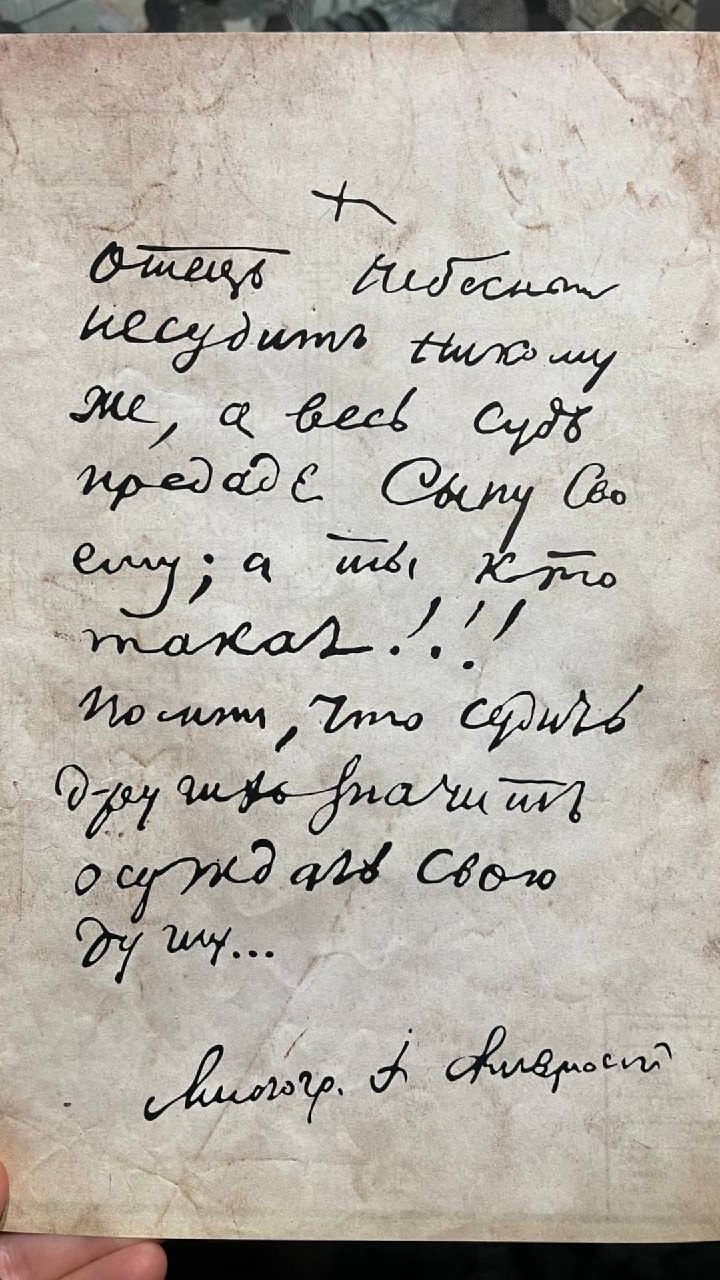 Отецъ Небесный
несудитъ никому
же, а весь судъ
предаде Сыну Сво
ему; а ты кто
такая!.!!
Помни, что судить
другихъ значитъ
осуждать свою
душу...
Многогр. А Амвросий